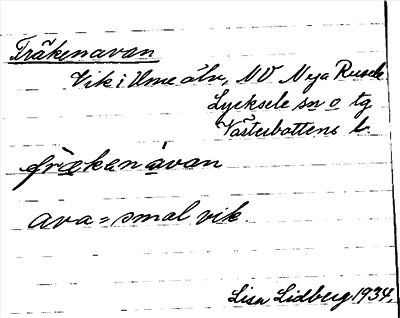 Fräkenavan
Vik i Ume älv, NV Nya Rusele
Lycksele sn o tg
Västerbottens l.
frækenavan
ava = smal vik.
Lisa Lidberg 1934.